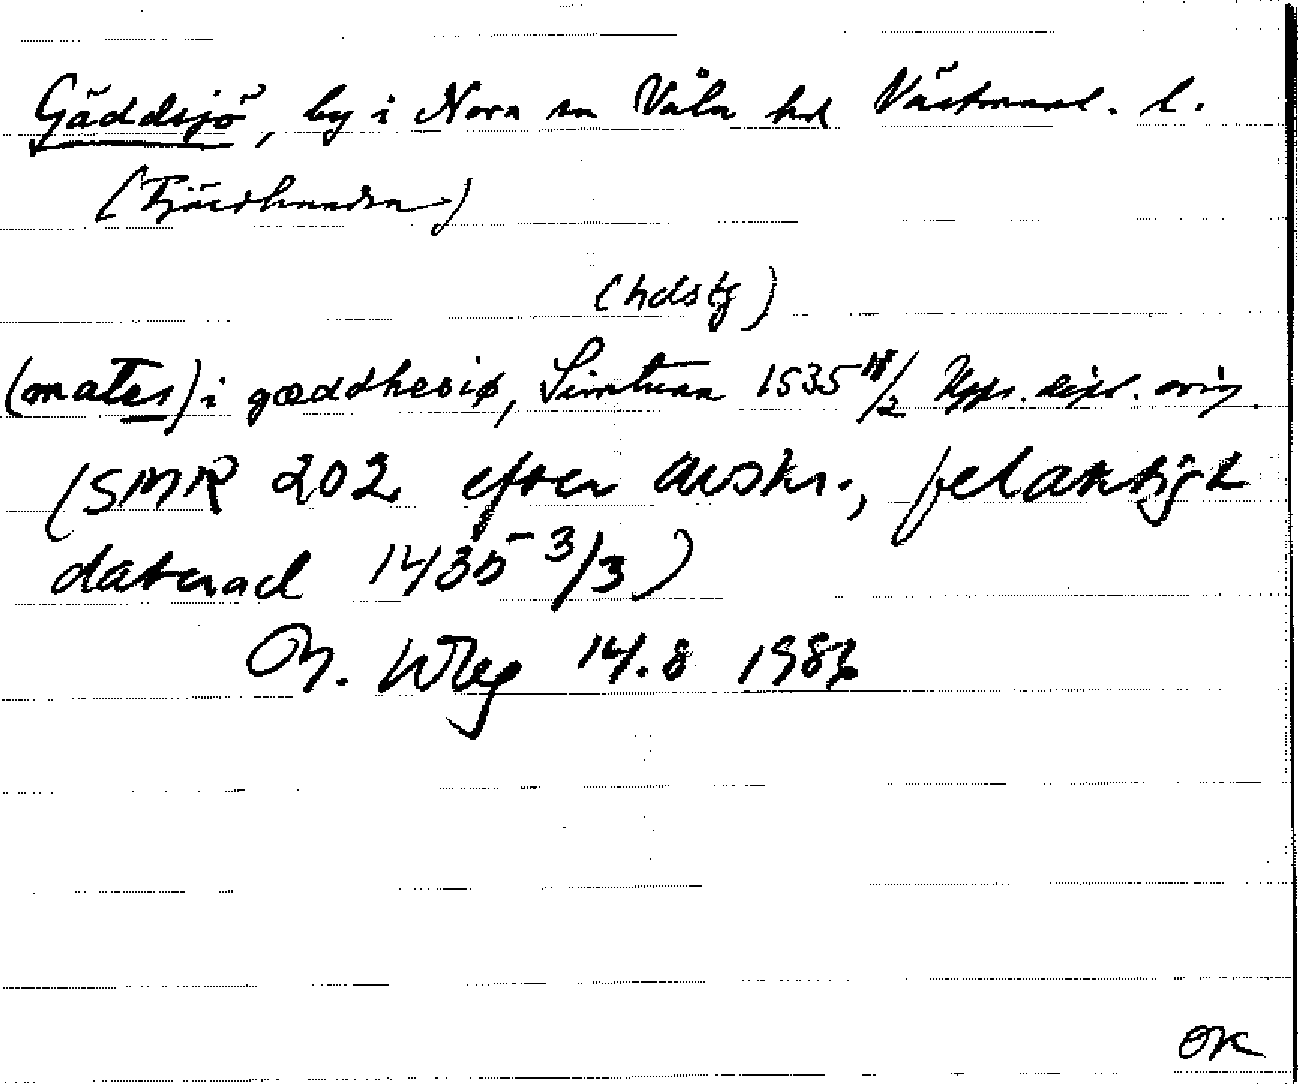 Gäddsjö, by i Nora sn Våla hd Västmanl. l.
(Fjärdhundra)
(hdstg)
(mates) i gæddhesiø, Simtuna 1535 18/2 Upps. dipl. orig.
(SMR 202 efter avskr., felaktigt
daterad 1435 3/3)
M. Wbg 14.8 1986
OK